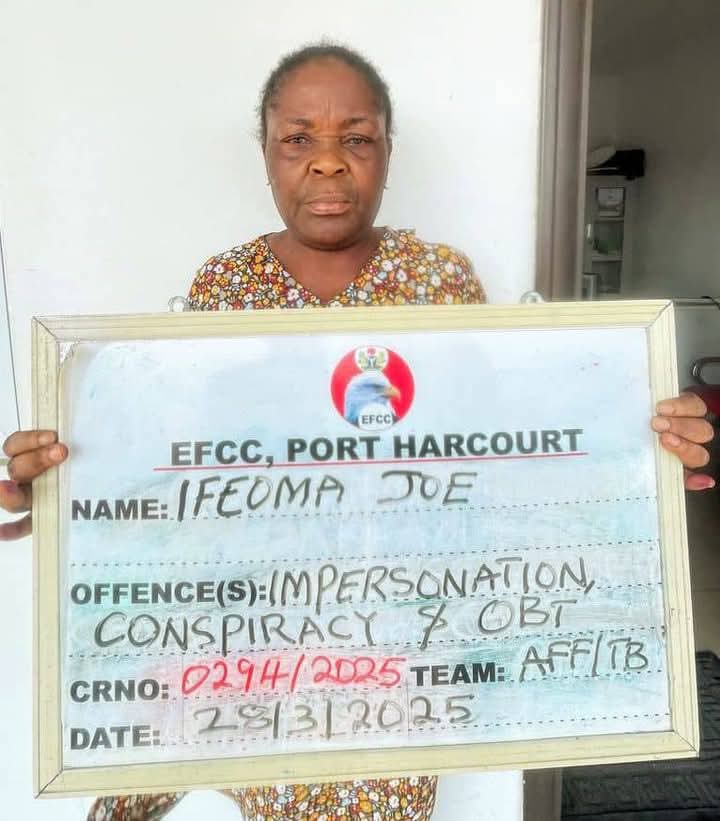 EFCC
EFCC, PORT HARCOURT
NAME: IFEOMA JOE
OFFENCE(S): IMPERSONATION,
CONSPIRACY & OBT
CRNO: 0294/2025 TEAM: AFF/TB
DATE: 28/3/2025